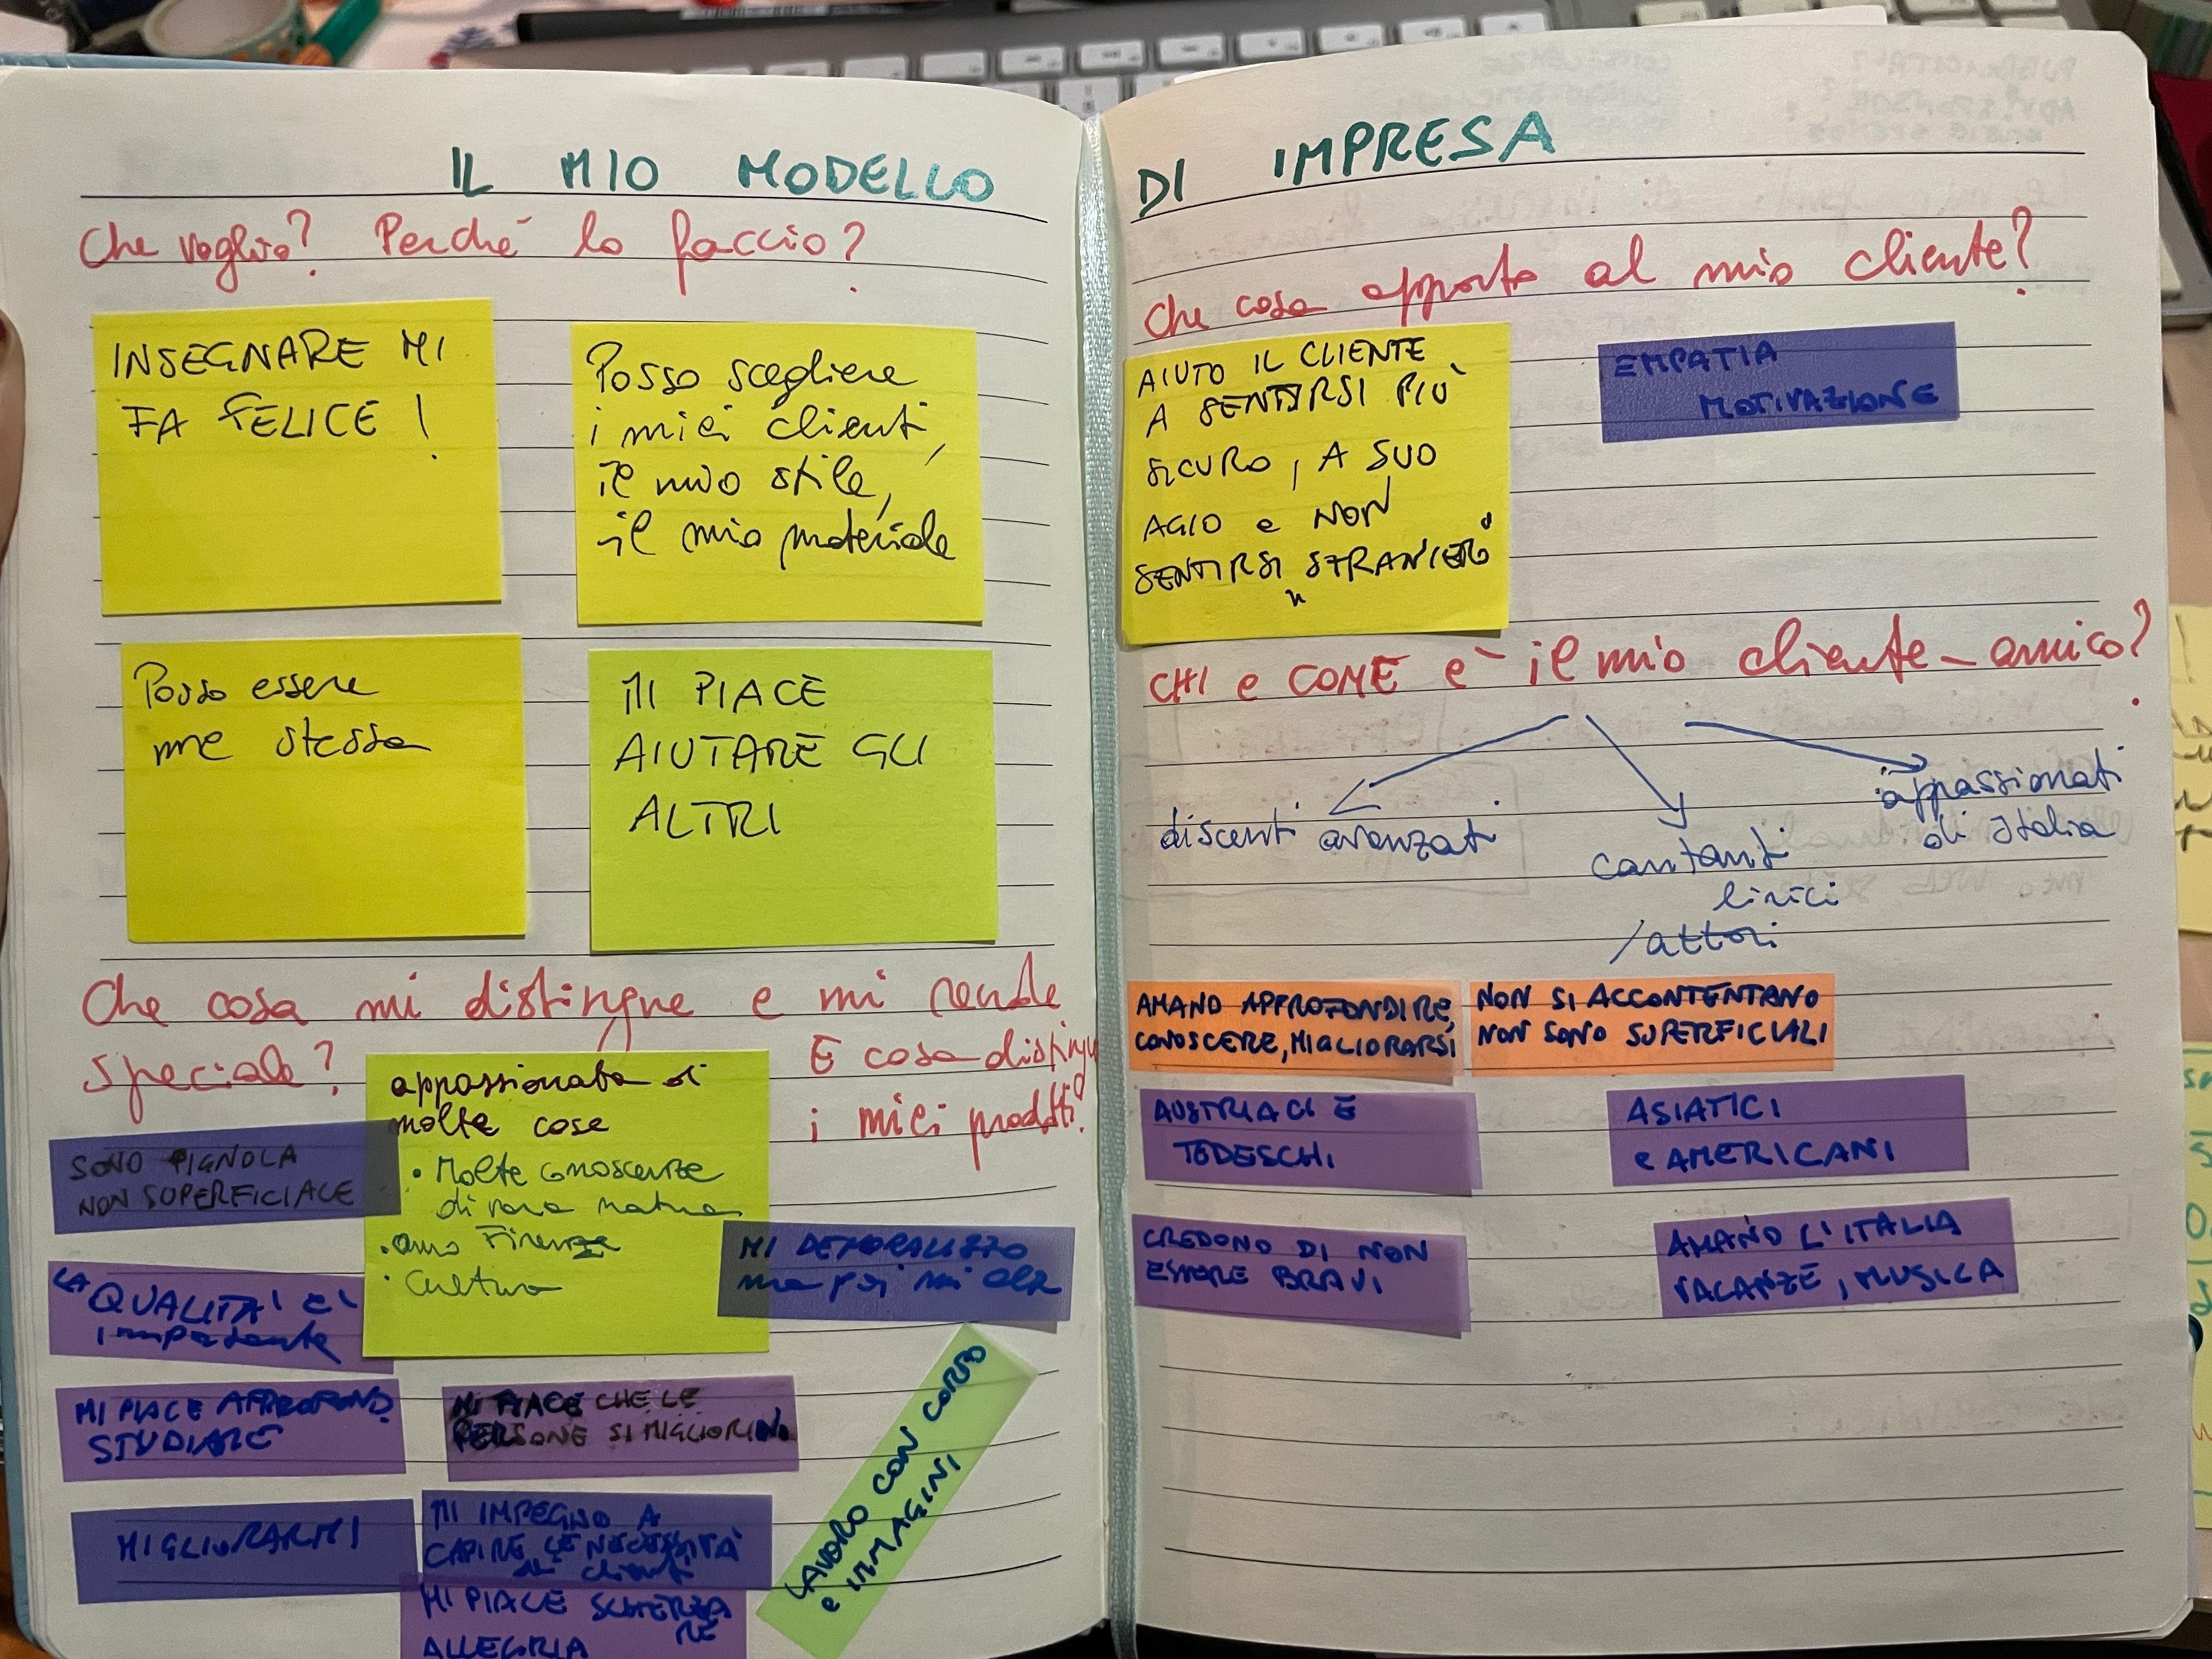 IL MIO MODELLO DI IMPRESA
Che voglio? Perché lo faccio?
INSEGNARE MI
FA FELICE !
Posso scegliere
i miei clienti,
il mio stile,
il mio materiale
Posso essere
me stessa
MI PIACE
AIUTARE GLI
ALTRI
Che cosa mi distingue e mi rende
speciale?
E cosa distingu
i miei prodotti?
appassionata di
molte cose
• Molte conoscenze
di varia natura
• amo Firenze
• Cultura
SONO PIGNOLA
NON SUPERFICIALE
MI DEMORALIZZO
ma poi mi alz
LA QUALITA' E'
importante
MI PIACE APPROFOND.
STUDIARE
MI PIACE CHE LE
PERSONE SI MIGLIORINO
MIGLIORARMI
MI IMPEGNO A
CAPIRE LE NECESSITÀ
dei clienti
MI PIACE SCHERZA
RE
ALLEGRIA
LAVORO CON CORPO
e IMMAGINI
Che cosa apporto al mio cliente?
AIUTO IL CLIENTE
A SENTIRSI PIÙ
SICURO, A SUO
AGIO e NON
SENTIRSI "STRANIERO"
EMPATIA
MOTIVAZIONE
CHI e COME è il mio cliente-amico?
discenti avanzati
cantanti
lirici
/attori
appassionati
di Italia
AMANO APPROFONDIRE,
CONOSCERE, MIGLIORARSI
NON SI ACCONTENTANO
NON SONO SUPERFICIALI
AUSTRIACI E
TEDESCHI
ASIATICI
e AMERICANI
CREDONO DI NON
ESSERE BRAVI
AMANO L'ITALIA
VACANZE, MUSICA